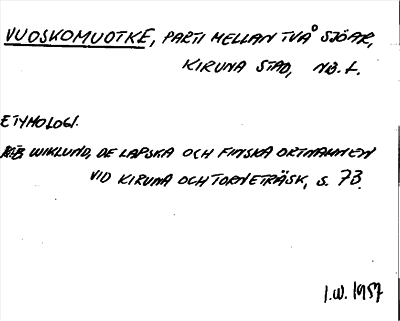 VUOSKOMUOTKE, PARTI MELLAN TVÅ SJÖAR,
KIRUNA STAD, NB. L.
ETYMOLOGI.
WIKLUND, DE LAPSKA OCH FINSKA ORTNAMNEN
VID KIRUNA OCH TORNETRÄSK, S. 73.
I.W. 1957